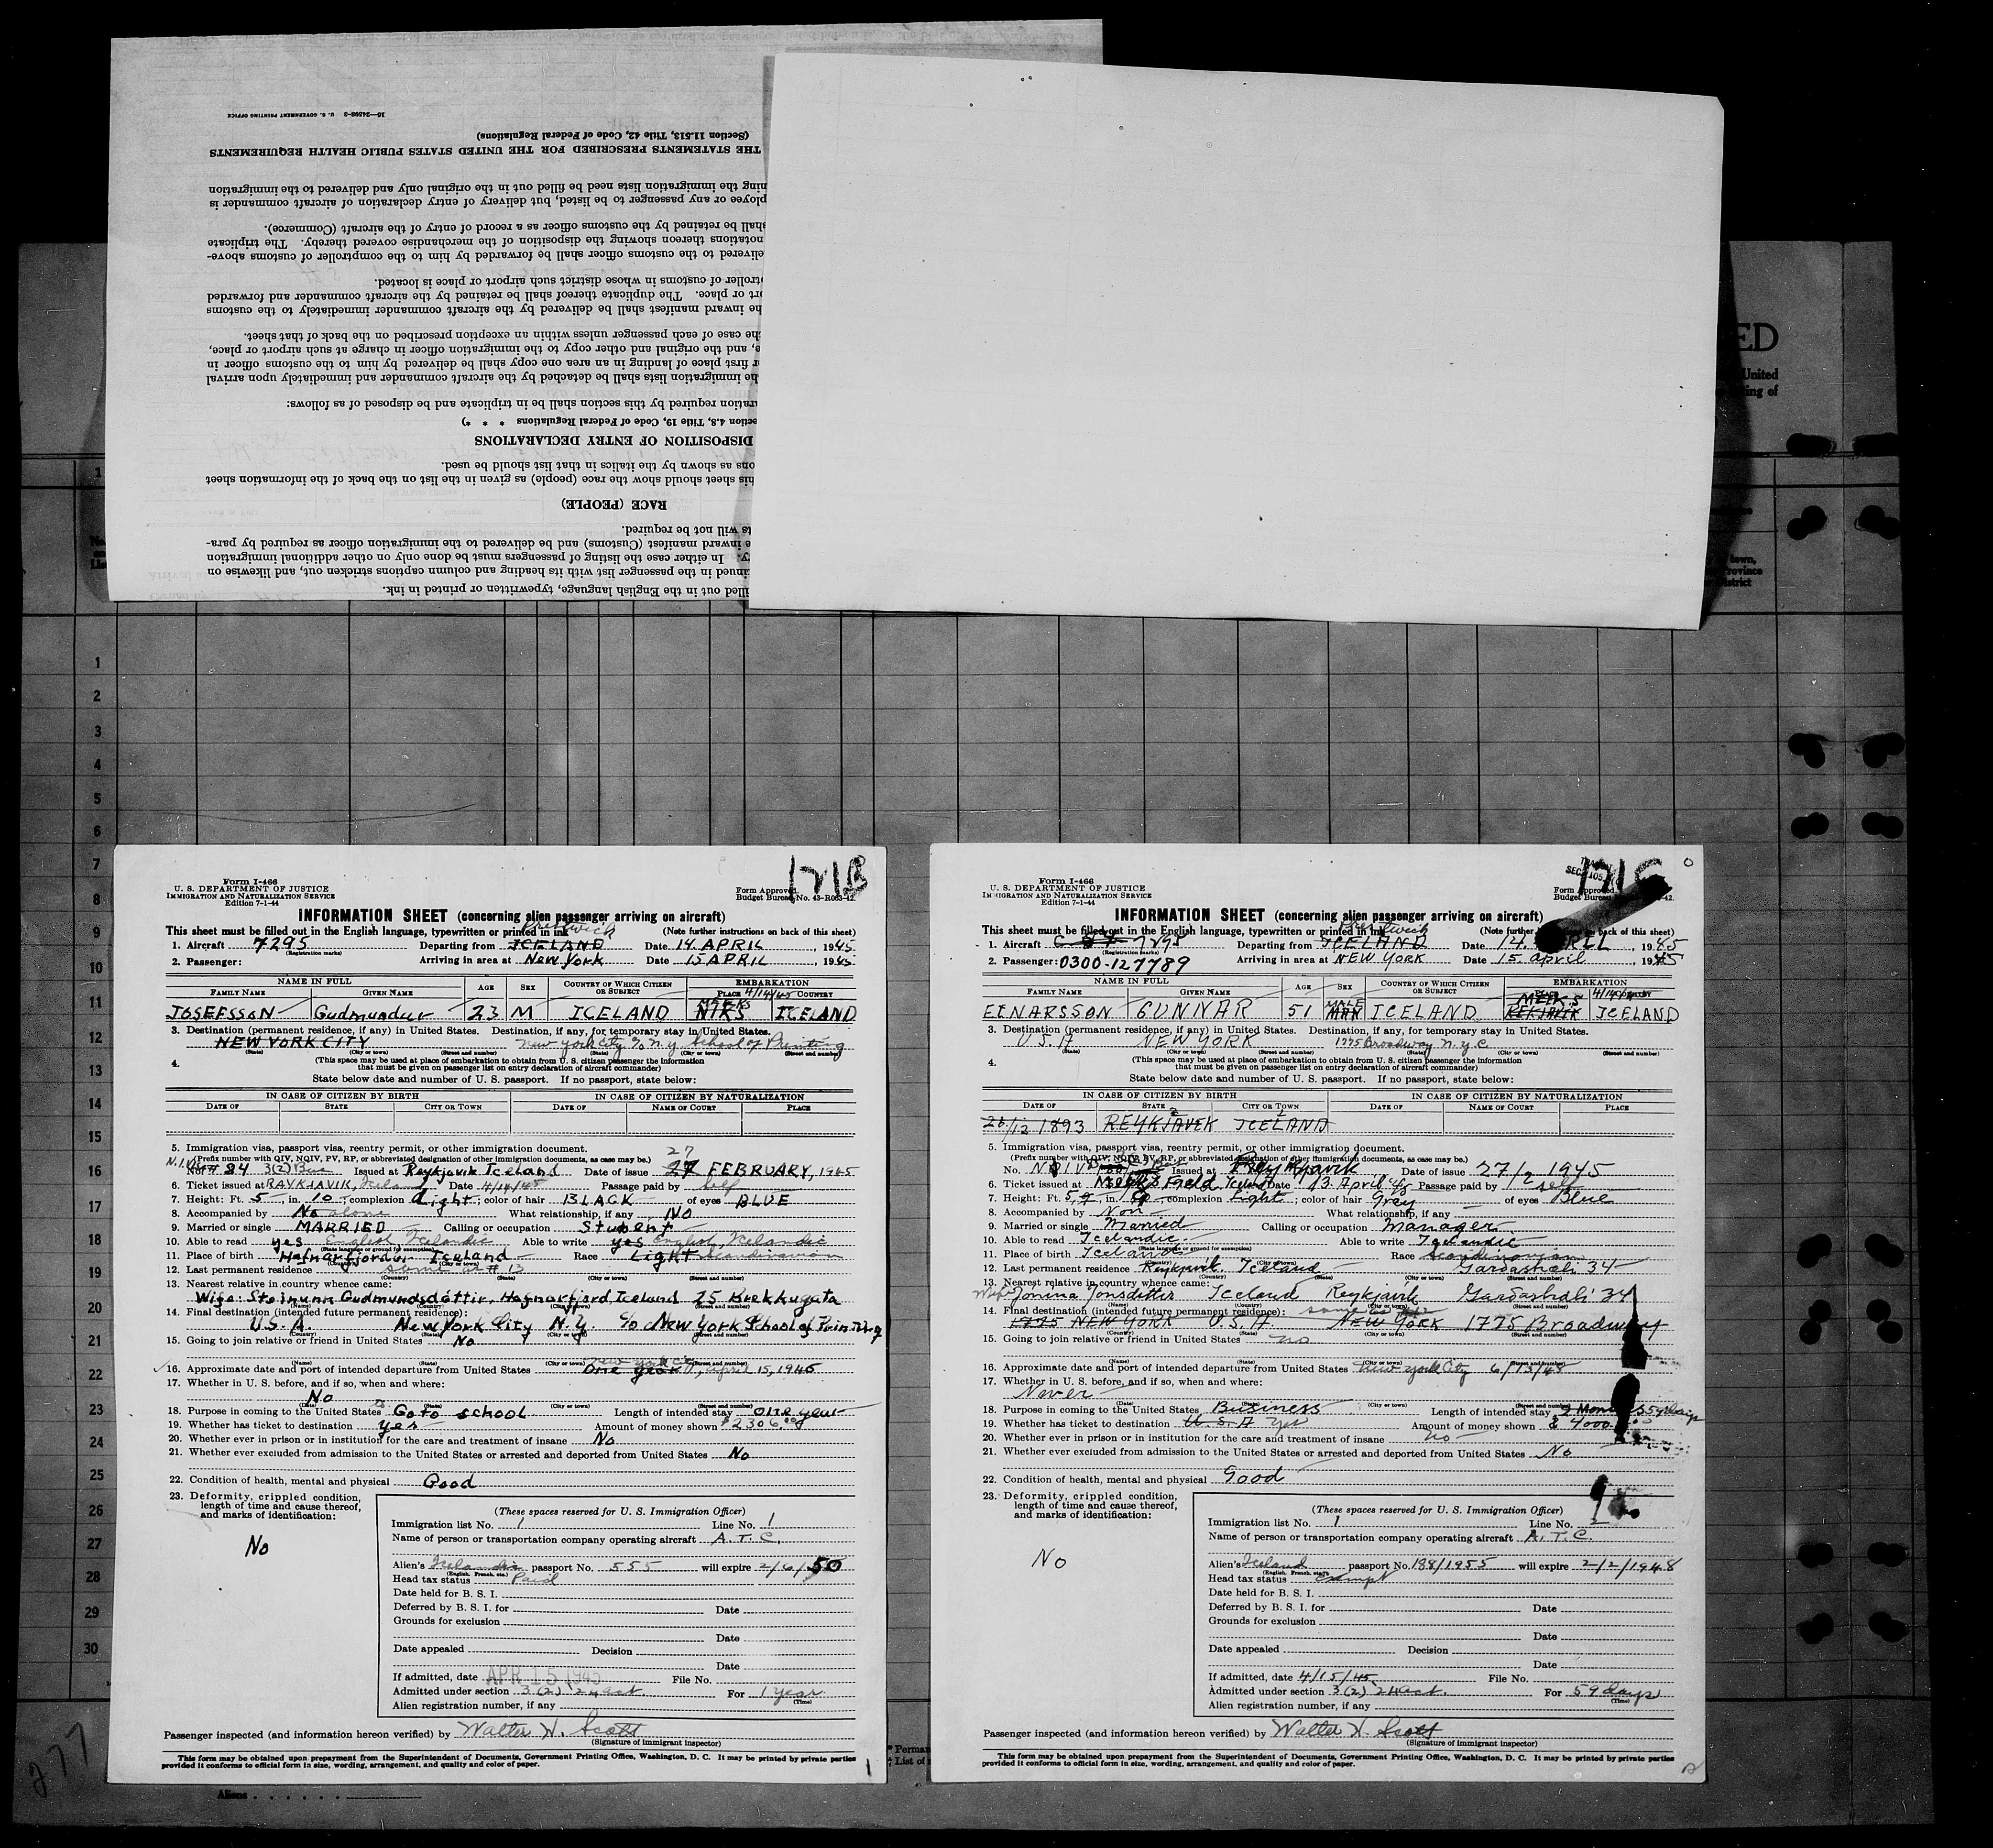 16—24598-3 U. S. GOVERNMENT PRINTING OFFICE
(Section 11.513, Title 42, Code of Federal Regulations)
THE STATEMENTS PRESCRIBED FOR THE UNITED STATES PUBLIC HEALTH REQUIREMENTS
the immigration lists need be filled out in the original only and delivered to the immigration
or any passenger to be listed, but delivery of entry declaration of aircraft commander is
shall be retained by the customs officer as a record of entry of the aircraft (Commerce).
notations thereon showing the disposition of the merchandise covered thereby. The triplicate
delivered to the customs officer shall be forwarded by him to the comptroller of customs above-
of customs in whose district such airport or place is located.
or place. The duplicate thereof shall be retained by the aircraft commander and forwarded
the inward manifest shall be delivered by the aircraft commander immediately to the customs
the case of each passenger unless within an exception prescribed on the back of that sheet.
and the original and other copy to the immigration officer in charge at such airport or place,
first place of landing in an area one copy shall be delivered by him to the customs officer in
the immigration lists shall be detached by the aircraft commander and immediately upon arrival
required by this section shall be in triplicate and be disposed of as follows:
4.8, Title 19, Code of Federal Regulations * * *)
DISPOSITION OF ENTRY DECLARATIONS
as shown by the italics in that list should be used.
this sheet should show the race (people) as given in the list on the back of the information sheet
RACE (PEOPLE)
will not be required.
inward manifest (Customs) and be delivered to the immigration officer as required by para-
In either case the listing of passengers must be done only on other additional immigration
in the passenger list with its heading and column captions stricken out, and likewise on
out in the English language, typewritten or printed in ink.
ED
United
of
town,
Province
District
1
1
2
3
4
5
6
7
8
9
10
11
12
13
14
15
16
17
18
19
20
21
22
23
24
25
26
27
28
29
30
277
Aliens
121B
Form I-466
U. S. DEPARTMENT OF JUSTICE
IMMIGRATION AND NATURALIZATION SERVICE
Edition 7-1-44
Form Approved.
Budget Bureau No. 43-R063-42.
INFORMATION SHEET (concerning alien passenger arriving on aircraft)
This sheet must be filled out in the English language, typewritten or printed in ink (Note further instructions on back of this sheet)
Prestwick
1. Aircraft 7295 Departing from ICELAND Date 14 APRIL, 1945
(Registration marks)
2. Passenger: Arriving in area at New York Date 15 APRIL, 1945
NAME IN FULL AGE SEX COUNTRY OF WHICH CITIZEN OR SUBJECT EMBARKATION
FAMILY NAME GIVEN NAME PLACE 4/14/45 COUNTRY
JOSEFSSON Gudmundur 23 M ICELAND MEEKS ICELAND
3. Destination (permanent residence, if any) in United States. Destination, if any, for temporary stay in United States.
NEW YORK CITY New York City % N.Y. School of Printing
(State) (City or town) (Street and number) (State) (City or town) (Street and number)
4. (This space may be used at place of embarkation to obtain from U. S. citizen passenger the information
that must be given on passenger list on entry declaration of aircraft commander)
State below date and number of U. S. passport. If no passport, state below:
IN CASE OF CITIZEN BY BIRTH IN CASE OF CITIZEN BY NATURALIZATION
DATE OF STATE CITY OR TOWN DATE OF NAME OF COURT PLACE
5. Immigration visa, passport visa, reentry permit, or other immigration document. 27
(Prefix number with QIV, NQIV, PV, RP, or abbreviated designation of other immigration documents, as case may be.)
No. 84 3(2) Bus Issued at Reykjavik Iceland Date of issue 27 FEBRUARY, 1945
6. Ticket issued at RAYKJAVIK, Iceland Date 4/14/45 Passage paid by Self
7. Height: Ft. 5 in. 10; complexion Light; color of hair BLACK of eyes BLUE
8. Accompanied by No alone What relationship, if any NO
9. Married or single MARRIED Calling or occupation Student
10. Able to read yes English, Icelandic Able to write yes English, Icelandic
(State language or ground for exemption)
11. Place of birth Hafnarfjordur Iceland Race Light Scandinavian
12. Last permanent residence same as # 13
(Country) (State) (City or town) (Street and number)
13. Nearest relative in country whence came:
Wife Steinunn Gudmundsdottir, Hafnarfjord, Iceland 25 Brekkugata
(Name) (Country) (City or town) (Street and number)
14. Final destination (intended future permanent residence):
U.S.A. New York City N.Y. c/o New York School of Printing
(Country) (State) (City or town) (Street and number)
15. Going to join relative or friend in United States No
(Name) (State) (City or town) (Street and number)
New York City
16. Approximate date and port of intended departure from United States One year, April 15, 1946
17. Whether in U. S. before, and if so, when and where:
No
(Date) (State) (City or town) (Street and number)
18. Purpose in coming to the United States Go to school Length of intended stay one year
19. Whether has ticket to destination yes Amount of money shown $2306.00
20. Whether ever in prison or in institution for the care and treatment of insane No
21. Whether ever excluded from admission to the United States or arrested and deported from United States No
22. Condition of health, mental and physical Good
23. Deformity, crippled condition,
length of time and cause thereof,
and marks of identification:
No
(These spaces reserved for U. S. Immigration Officer)
Immigration list No. 1 Line No. 1
Name of person or transportation company operating aircraft A. T. C.
Alien's Icelandic passport No. 555 will expire 2/6/50
(English, French, etc.)
Head tax status Paid
Date held for B. S. I.
Deferred by B. S. I. for Date
Grounds for exclusion
Date
Date appealed Decision
Date
If admitted, date APR 15 1945 File No.
Admitted under section 3(2) 24 act. For 1 year
(Time)
Alien registration number, if any
Passenger inspected (and information hereon verified) by Walter H. Scott
(Signature of immigrant inspector)
This form may be obtained upon prepayment from the Superintendent of Documents, Government Printing Office, Washington, D. C. It may be printed by private parties
provided it conforms to official form in size, wording, arrangement, and quality and color of paper.
1
Perman
List of
121C
Form I-466
U. S. DEPARTMENT OF JUSTICE
IMMIGRATION AND NATURALIZATION SERVICE
Edition 7-1-44
Form Approved
Budget Bureau 42.
INFORMATION SHEET (concerning alien passenger arriving on aircraft)
This sheet must be filled out in the English language, typewritten or printed in ink (Note further back of this sheet)
Prestwick
1. Aircraft 7295 Departing from ICELAND Date 14, 1945
(Registration marks)
2. Passenger: 0300-127789 Arriving in area at NEW YORK Date 15 April, 1945
NAME IN FULL AGE SEX COUNTRY OF WHICH CITIZEN OR SUBJECT EMBARKATION
FAMILY NAME GIVEN NAME PLACE COUNTRY
EINARSSON GUNNAR 51 MALE MAN ICELAND MEEKS REKJAVIK ICELAND
3. Destination (permanent residence, if any) in United States. Destination, if any, for temporary stay in United States.
U.S.A NEW YORK 1775 Broadway N.Y.C.
(State) (City or town) (Street and number) (State) (City or town) (Street and number)
4. (This space may be used at place of embarkation to obtain from U. S. citizen passenger the information
that must be given on passenger list on entry declaration of aircraft commander)
State below date and number of U. S. passport. If no passport, state below:
IN CASE OF CITIZEN BY BIRTH IN CASE OF CITIZEN BY NATURALIZATION
DATE OF STATE CITY OR TOWN DATE OF NAME OF COURT PLACE
26/12 1893 REYKJAVEK ICELAND
5. Immigration visa, passport visa, reentry permit, or other immigration document.
(Prefix number with QIV, NQIV, PV, RP, or abbreviated designation of other immigration documents, as case may be.)
No. Issued at Reykjavik Date of issue 27/2 1945
6. Ticket issued at Meeks Field, Iceland Date 13 April 45 Passage paid by self
7. Height: Ft. 5, in.; complexion Light; color of hair Grey of eyes Blue
8. Accompanied by Non What relationship, if any
9. Married or single Married Calling or occupation Manager
10. Able to read Icelandic Able to write Icelandic
(State language or ground for exemption)
11. Place of birth Iceland Race Scandinavian
12. Last permanent residence Reykjavik Iceland Gardashali 34
(Country) (State) (City or town) (Street and number)
13. Nearest relative in country whence came:
Wife Jonina Jonsdottir Iceland Reykjavik Gardashali 34
14. Final destination (intended future permanent residence): same as #12
1775 NEW YORK U.S.A NEW YORK 1775 Broadway
(Country) (State) (City or town) (Street and number)
15. Going to join relative or friend in United States no
(Name) (State) (City or town) (Street and number)
16. Approximate date and port of intended departure from United States New York City 6/13/45
17. Whether in U. S. before, and if so, when and where:
Never
(Date) (State) (City or town) (Street and number)
18. Purpose in coming to the United States Business Length of intended stay 2 59 days
19. Whether has ticket to destination U.S.A yes Amount of money shown $ 4000
20. Whether ever in prison or in institution for the care and treatment of insane no
21. Whether ever excluded from admission to the United States or arrested and deported from United States No
22. Condition of health, mental and physical Good
23. Deformity, crippled condition,
length of time and cause thereof,
and marks of identification:
No
(These spaces reserved for U. S. Immigration Officer)
Immigration list No. 1 Line No. 2
Name of person or transportation company operating aircraft A. T. C.
Alien's Iceland passport No. 188/1955 will expire 2/2/1948
(English, French, etc.)
Head tax status Exempt
Date held for B. S. I.
Deferred by B. S. I. for Date
Grounds for exclusion
Date
Date appealed Decision
Date
If admitted, date 4/15/45 File No.
Admitted under section 3(2) 24 act. For 59 days
(Time)
Alien registration number, if any
Passenger inspected (and information hereon verified) by Walter H. Scott
(Signature of immigrant inspector)
This form may be obtained upon prepayment from the Superintendent of Documents, Government Printing Office, Washington, D. C. It may be printed by private parties
provided it conforms to official form in size, wording, arrangement, and quality and color of paper.
2